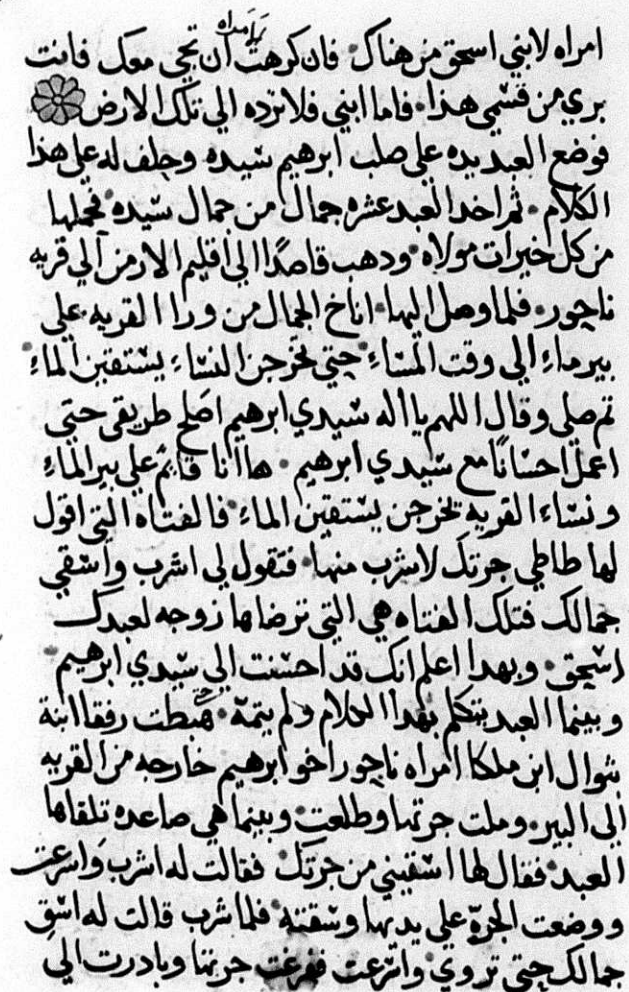 امراه لابني اسحق من هناك فان كرهت امراه ان تجي معك فانت
بري من قسمي هذا فاما ابني فلا ترده الي تلك الارض
فوضع العبد يده علي صلب ابرهيم سيده وحلف له علي هذا
الكلام ثم اخد العبد عشره جمال من جمال سيده فحملها
من كل خيرات مولاه ودهب قاصدًا الي اقليم الارمن الي قريه
ناحور فلما وصل اليها اناخ الجمال من ورا القريه علي
بير ماء الي وقت المساء حتي تخرجن النساء يستقين الماء
تم صلي وقال اللهم ياأله سيدي ابرهيم اصلح طريقي حتي
اعمل احسانًا مع سيدي ابرهيم هاأنا قايم علي بير الماءِ
ونساء القريه تخرجن يستقين الماء فالفتاه التي اقول
لها طاطي جرتك لاشرب منها فتقول لي اشرب واسقي
جمالك فتلك الفتاه هي التي ترضاها زوجه لعبدك
اسحق وبهدا اعلم انك قد احسنت الي سيدي ابرهيم
وبينما العبد يتكلم بهدا الكلام ولم يتمه هبطت رفقا ابنة
بتوال ابن ملكا امراه ناحور اخو ابرهيم خارجه من القريه
الي البير وملت جرتها وطلعت وبينما هي صاعده تلقاها
العبد فقال لها اسقيني من جرتك فقالت له اشرب واسرعت
ووضعت الجره علي يدها وسقته فلما شرب قالت له اسق
جمالك حتي تروي واسرعت ففرغت جرتها وبادرت الي